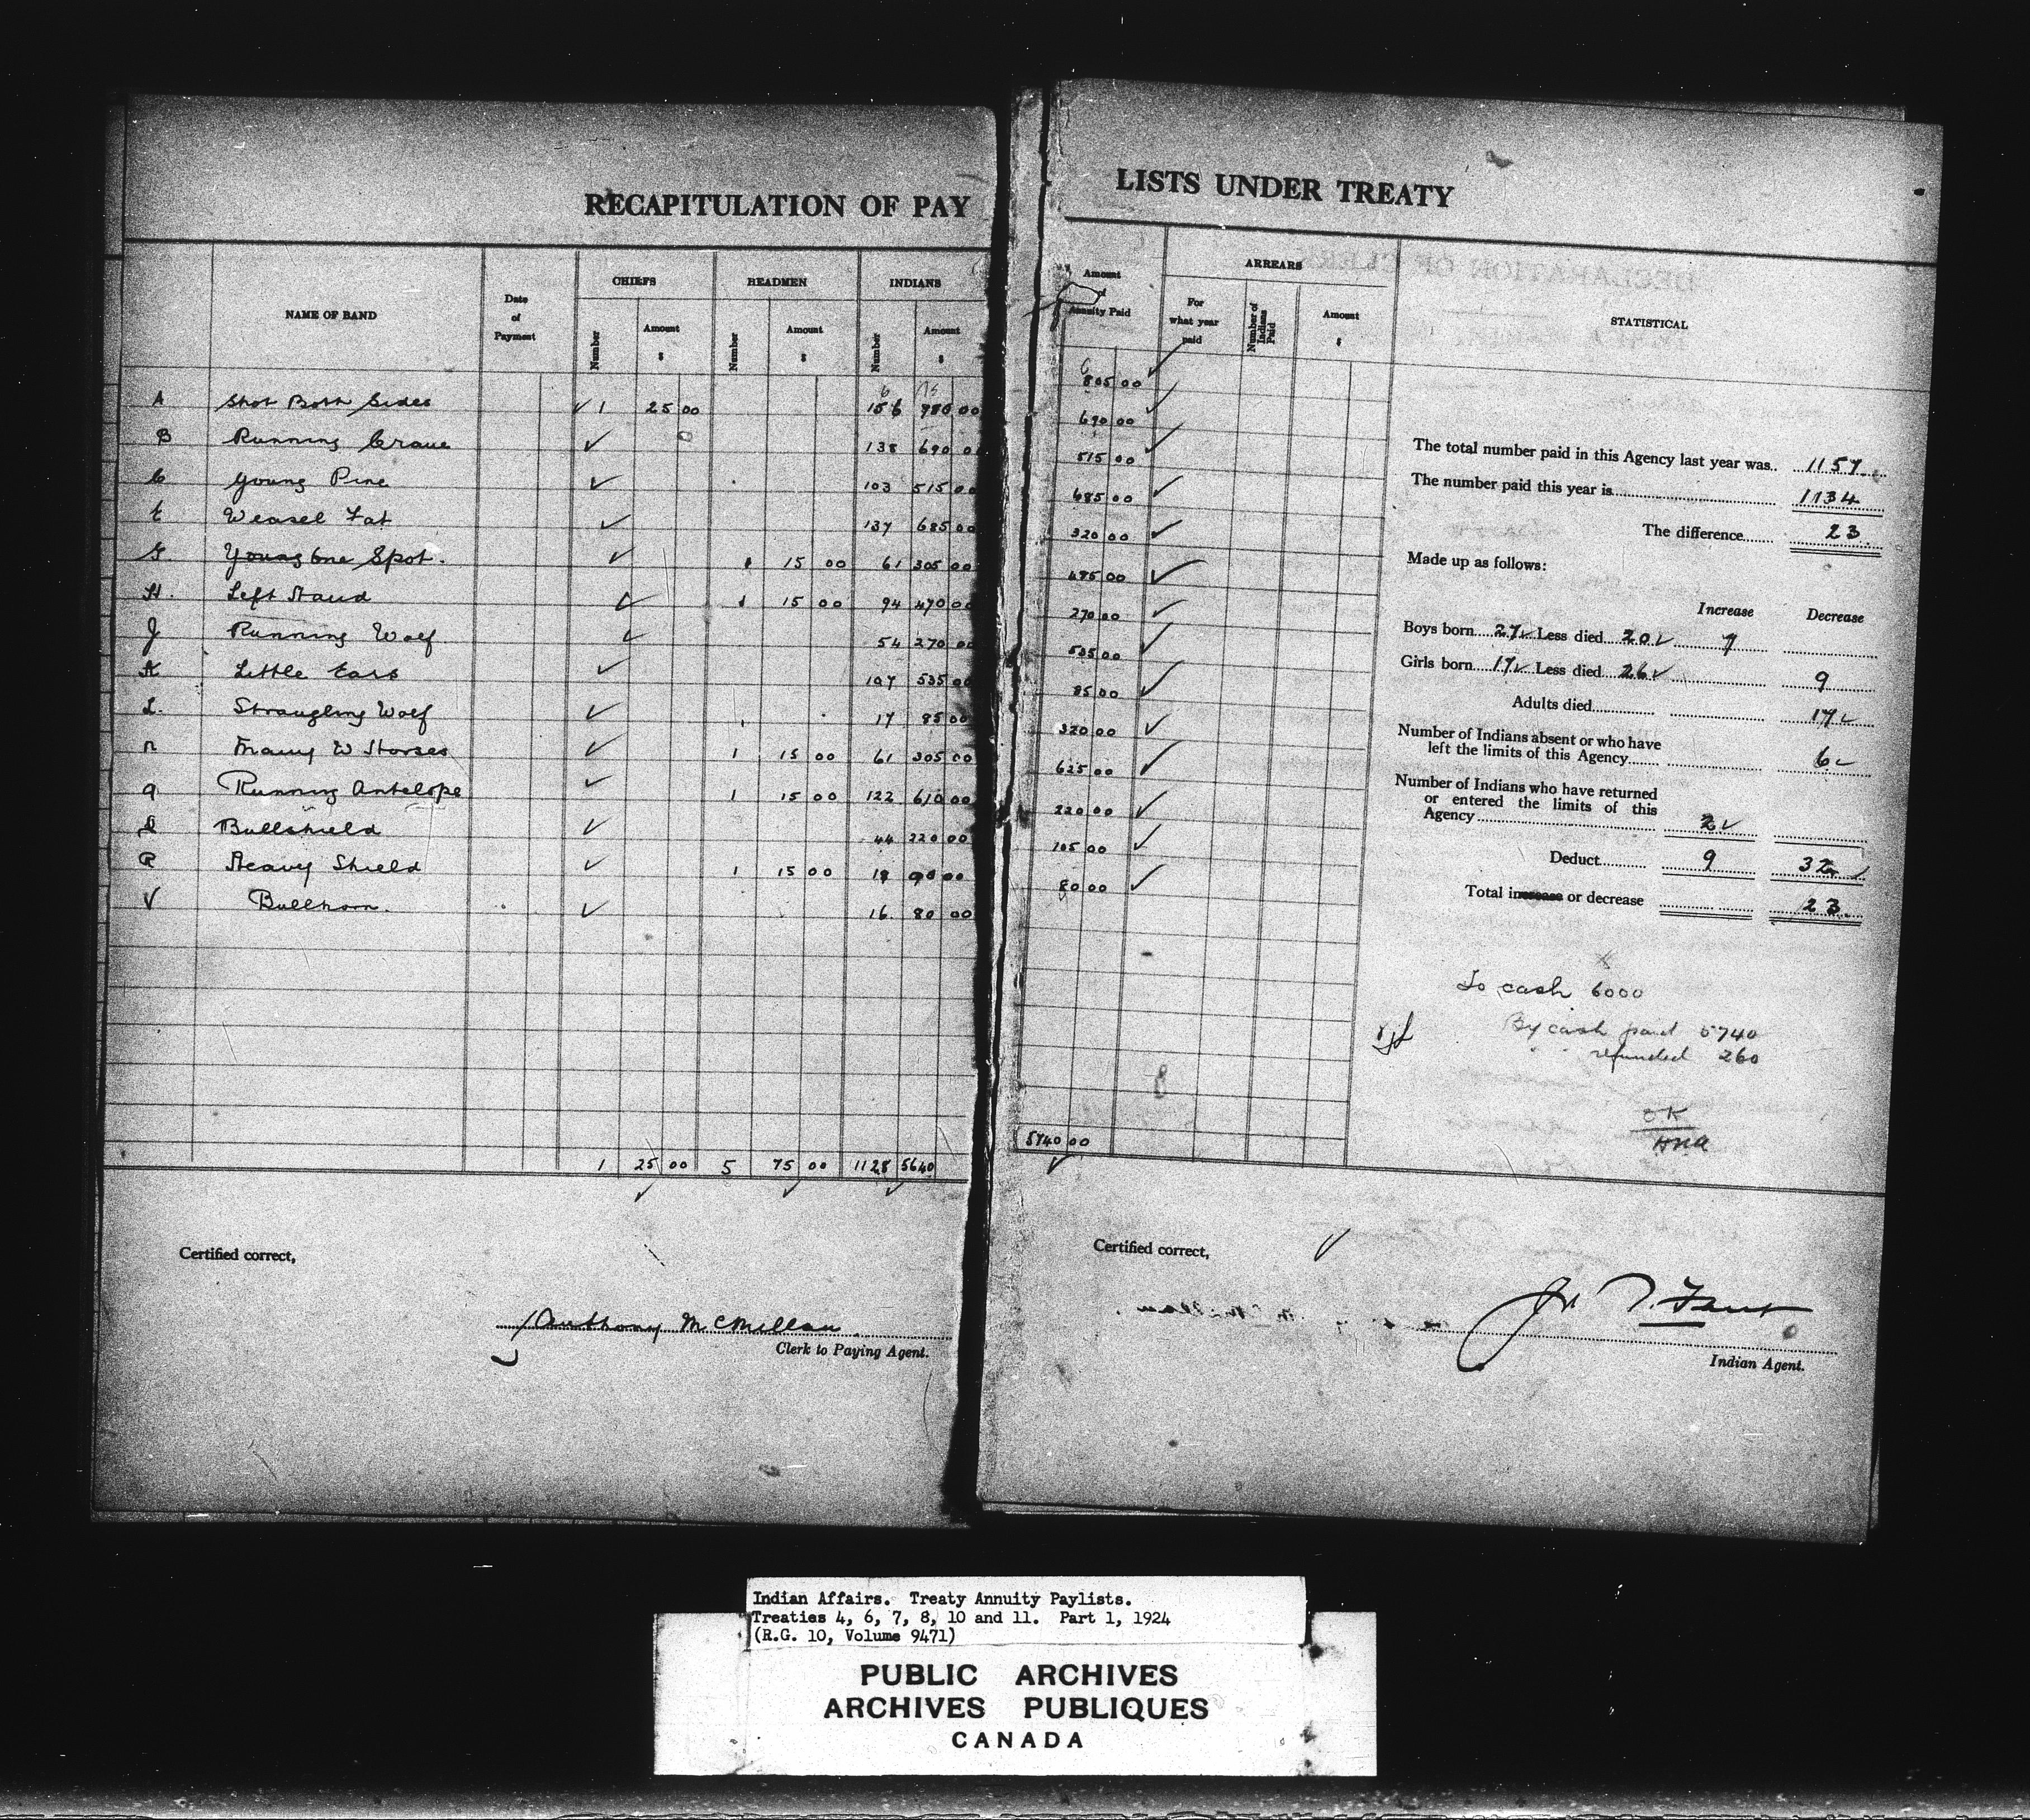 RECAPITULATION OF PAY LISTS UNDER TREATY
NAME OF BAND
Date of Payment
CHIEFS
Number
Amount $
HEADMEN
Number
Amount $
INDIANS
Number
Amount $
Amount of Annuity Paid
ARREARS
For what year paid
Number of Indians Paid
Amount $
STATISTICAL
A Shot Both Sides 1 25 00 156 780 00 805 00
B Running Crane 138 690 00 690 00
C Young Pine 103 515 00 515 00
E Weasel Fat 137 685 00 685 00
G One Spot. 1 15 00 61 305 00 320 00
H. Left Hand 1 15 00 94 470 00 485 00
J Running Wolf 54 270 00 270 00
K Little Ears 107 535 00 535 00
L. Strangling Wolf 17 85 00 85 00
N Many W Horses 1 15 00 61 305 00 320 00
Running Antelope 1 15 00 122 610 00 625 00
Bullshield 44 220 00 220 00
R Heavy Shield 1 15 00 18 90 00 105 00
V Bullhorn. 16 80 00 80 00
1 25 00 5 75 00 1128 5640 5740 00
The total number paid in this Agency last year was.. 1157
The number paid this year is 1134
The difference 23
Made up as follows:
Increase Decrease
Boys born 27 Less died 20 7
Girls born 17 Less died 26 9
Adults died 17
Number of Indians absent or who have
left the limits of this Agency 6
Number of Indians who have returned
or entered the limits of this
Agency 2
Deduct 9 32
Total increase or decrease 23
To cash 6000
By cash paid 5740
refunded 260
OK
Certified correct,
Anthony McMillan
Clerk to Paying Agent.
Certified correct,
Indian Agent.
Indian Affairs. Treaty Annuity Paylists.
Treaties 4, 6, 7, 8, 10 and 11. Part 1, 1924
(R.G. 10, Volume 9471)
PUBLIC ARCHIVES
ARCHIVES PUBLIQUES
CANADA